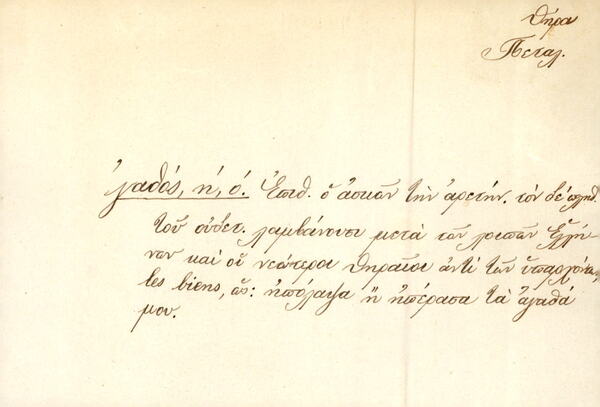 Θήρα
Πεταλ.
ἀγαθός, ή, ό. Ἐπιθ. ὁ ἀσκῶν τὴν ἀρετήν. τὸν δὲ πληθ.
τοῦ οὐδετ. λαμβάνουσι μετὰ τῶν λοιπῶν Ἑλλή-
νων καὶ οἱ νεώτεροι Θηραῖοι ἀντὶ τῶν ὑπαρχόντων,
les biens, ὡς: ἠπόλαψα ἢ ἠπέρασα τὰ ἀγαθά
μου.